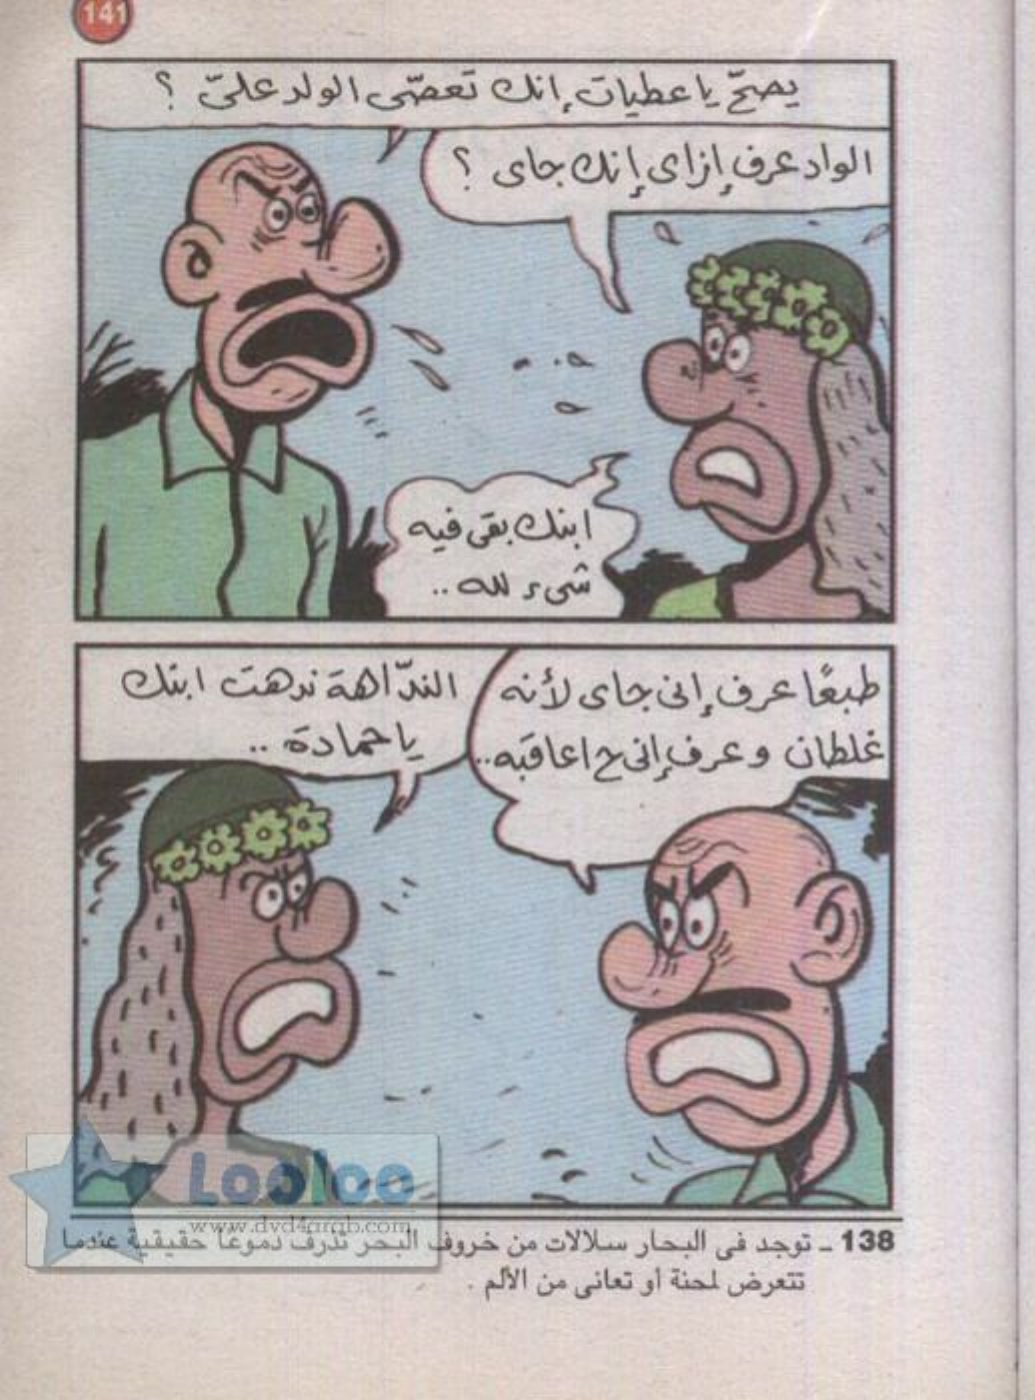 141
يصحّ يا عطيات إنك تعصّى الولد علىّ ؟
الواد عرف إزاى إنك جاى ؟
ابنك بقى فيه
شىء لله ..
طبعًا عرف إنى جاى لأنه
غلطان وعرف إنى ح اعاقبه..
الندّاهة ندهت ابنك
يا حمادة ..
Looloo
www.dvd4arab.com
138 ـ توجد فى البحار سلالات من خروف البحر تذرف دموعًا حقيقية عندما
تتعرض لمحنة أو تعانى من الألم .